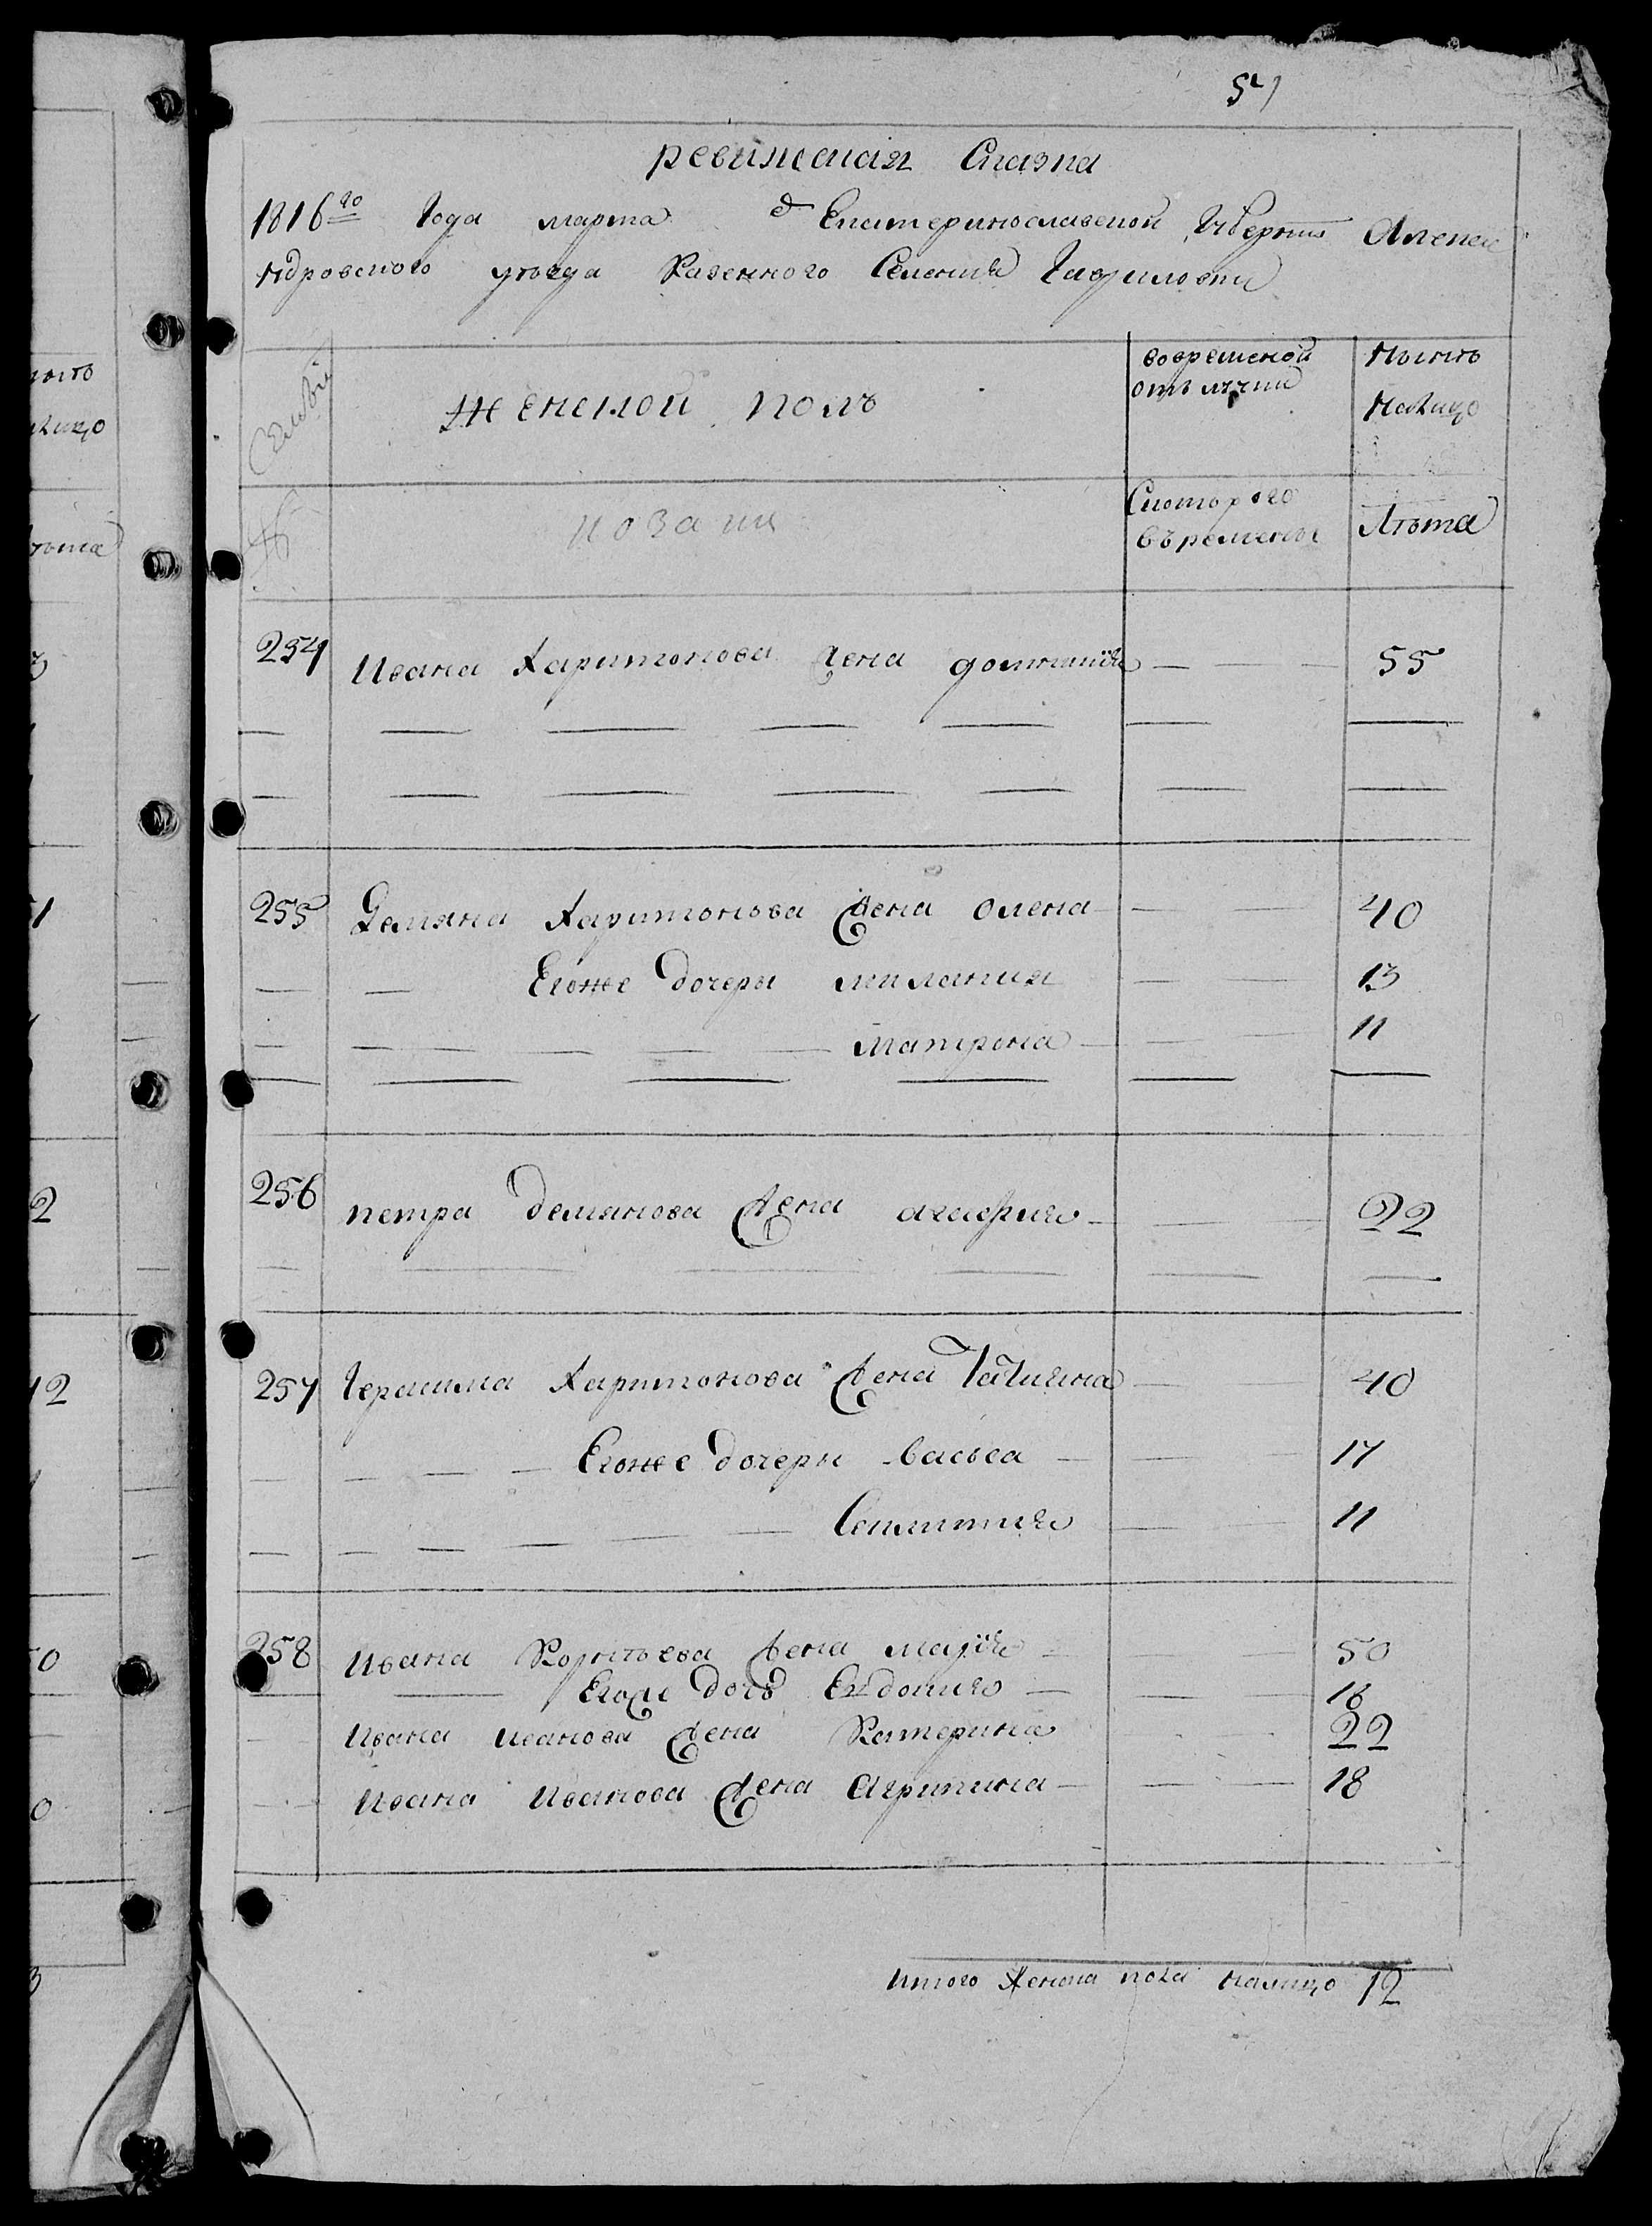 54
ревижская Сказка
1816го Года марта д Екатеринославской Губернии Алексан
ндровского уъезда Казенного Селения Гавриловки
Семьи
женской полъ
вовременой
отълучки
Нынъ
Налицо
№
Скоторого
въремены
Лъта
254 Ивана Харитонова жена домникия 55
255 Демяна Харитонова жена олена 40
Егоже дочери милания 13
матрона 11
256 петра демянова жена агафия 22
257 Герасима Харитонова жена Татияна 40
Егоже дочери васьса 17
Секлития 11
258 Ивана Корнъева жена мария 50
Егоже дочъ Евдокия 16
Ивана иванова жена Катерина 22
Ивана Иванова жена Агрипина 18
Итого женска пола налицо 12
ыто
лицо
ъта
3
51
2
12
50
0
3